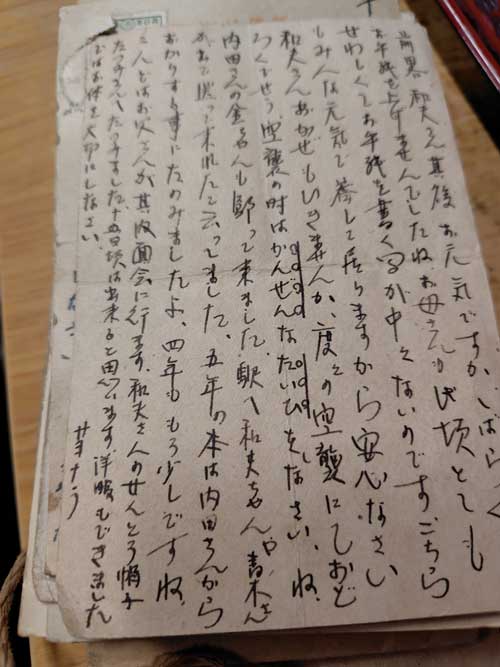 前畧 和夫さん其後お元気ですか、しばらく
お手紙を上げませんでしたねお母さんも此頃とても
せわしくてお手紙を書く間が中々ないのですこちら
もみんな元気で暮して居りますから安心なさい
和夫さんおかぜもいきませんか、度々の空襲にしおど
ろくでせう、空襲の時はかんぜんなたいひをしなさい、ね、
内田さんの金ちゃんも帰って来ました、駅へ和夫ちゃんや青木さん
がおで送って来れたと云ってました、五年の本は内田さんから
おかりする事にたのみましたよ、四年ももう少しですね、
こんどはお父さんが其内面会に行きます、和夫さんのせんとう帽子
たつ子さんへたのみました、十五日頃は出来ると思います、洋服もできました
ではお体を大切にしなさい
サヨナラ